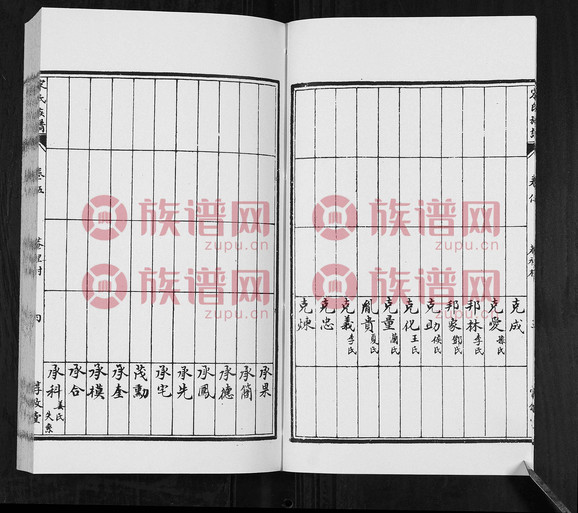 克成
克愛 張氏
邦林 李氏
邦家 鄧氏
克助 侯氏
克化 王氏
克量 蘭氏
胤貴 夏氏
克義 李氏
克忠
克煉
承果
承簡
承德
承鳳
承先
承宅
茂勳
承奎
承模
承合
承科 姜氏 失系
宋氏族譜
卷五
四
敦敘堂
族谱网
zupu.cn
族谱网
zupu.cn
族谱网
zupu.cn
族谱网
zupu.cn